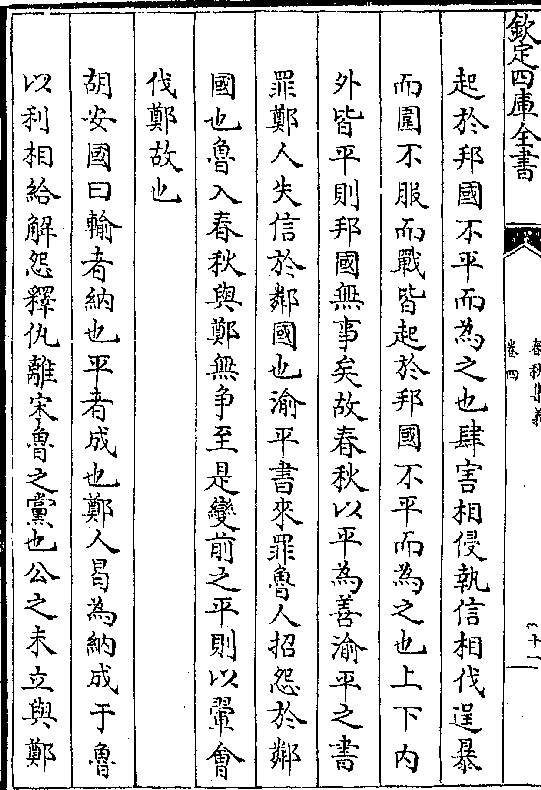 欽定四庫全書
春秋集義
卷四
起於邦國不平而為之也肆害相侵執信相伐逞暴
而圍不服而戰皆起於邦國不平而為之也上下內
外皆平則邦國無事矣故春秋以平為善渝平之書
罪鄭人失信於鄰國也渝平書來罪魯人招怨於鄰
國也魯入春秋與鄭無爭至是變前之平則以翬會
伐鄭故也
胡安國曰輸者納也平者成也鄭人曷為納成于魯
以利相給解怨釋仇離宋魯之黨也公之未立與鄭